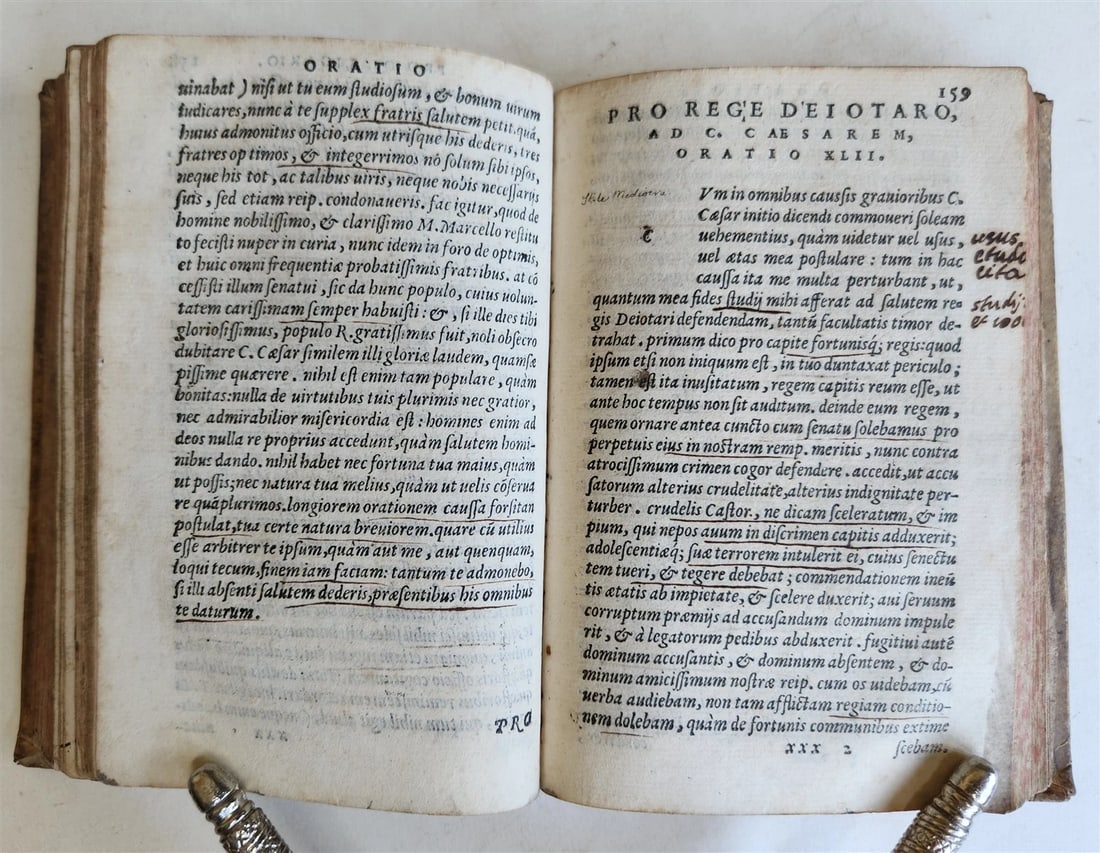 ORATIO
uinabat) nisi ut tu eum studiosum, & bonum uirum
iudicares, nunc à te supplex fratris salutem petit. quā,
huius admonitus officio, cum utrisque his dederis, tres
fratres optimos, & integerrimos nō solum sibi ipsos,
neque his tot, ac talibus uiris, neque nobis necessarijs
suis, sed etiam reip. condonaueris. fac igitur, quod de
homine nobilissimo, & clarissimo M. Marcello restitu
to fecisti nuper in curia, nunc idem in foro de optimis,
et huic omni frequentiæ probatissimis fratribus. at cō
cessisti illum senatui, sic da hunc populo, cuius uolun-
tatem carissimam semper habuisti: &, si ille dies tibi
gloriosissimus, populo R. gratissimus fuit, noli obsecro
dubitare C. Cæsar similem illi gloriæ laudem, quamsæ
pissime quærere. nihil est enim tam populare, quàm
bonitas: nulla de uirtutibus tuis plurimis nec gratior,
nec admirabilior misericordia est: homines enim ad
deos nulla re proprius accedunt, quàm salutem homi-
nibus dando. nihil habet nec fortuna tua maius, quàm
ut possis; nec natura tua melius, quàm ut uelis cōserua
re quāplurimos. longiorem orationem caussa forsitan
postulat, tua certe natura breuiorem. quare cū utilius
esse arbitrer te ipsum, quàm aut me, aut quenquam,
loqui tecum, finem iam faciam: tantum te admonebo,
si illi absenti salutem dederis, præsentibus his omnibus
te daturum.
PRO
159
PRO REGE DEIOTARO,
AD C. CAESAREM,
ORATIO XLII.
Vm in omnibus caussis grauioribus C.
Cæsar initio dicendi commoueri soleam
uehementius, quàm uidetur uel usus,
uel ætas mea postulare: tum in hac
caussa ita me multa perturbant, ut,
quantum mea fides studij mihi afferat ad salutem re-
gis Deiotari defendendam, tantū facultatis timor de-
trahat. primum dico pro capite fortunisq; regis: quod
ipsum etsi non iniquum est, in tuo duntaxat periculo;
tamen est ita inusitatum, regem capitis reum esse, ut
ante hoc tempus non sit auditum. deinde eum regem,
quem ornare antea cuncto cum senatu solebamus pro
perpetuis eius in nostram remp. meritis, nunc contra
atrocissimum crimen cogor defendere. accedit, ut accu
satorum alterius crudelitate, alterius indignitate per-
turber. crudelis Castor, ne dicam sceleratum, & im
pium, qui nepos auum in discrimen capitis adduxerit;
adolescentiæq; suæ terrorem intulerit ei, cuius senectu
tem tueri, & tegere debebat; commendationem ineū
tis ætatis ab impietate, & scelere duxerit; aui seruum
corruptum præmijs ad accusandum dominum impule
rit, & à legatorum pedibus abduxerit. fugitiui autē
dominum accusantis, & dominum absentem, & do-
minum amicissimum nostræ reip. cum os uidebam, cū
uerba audiebam, non tam afflictam regiam conditio-
nem dolebam, quàm de fortunis communibus extime
XXX 2
scebam.
usus
studij